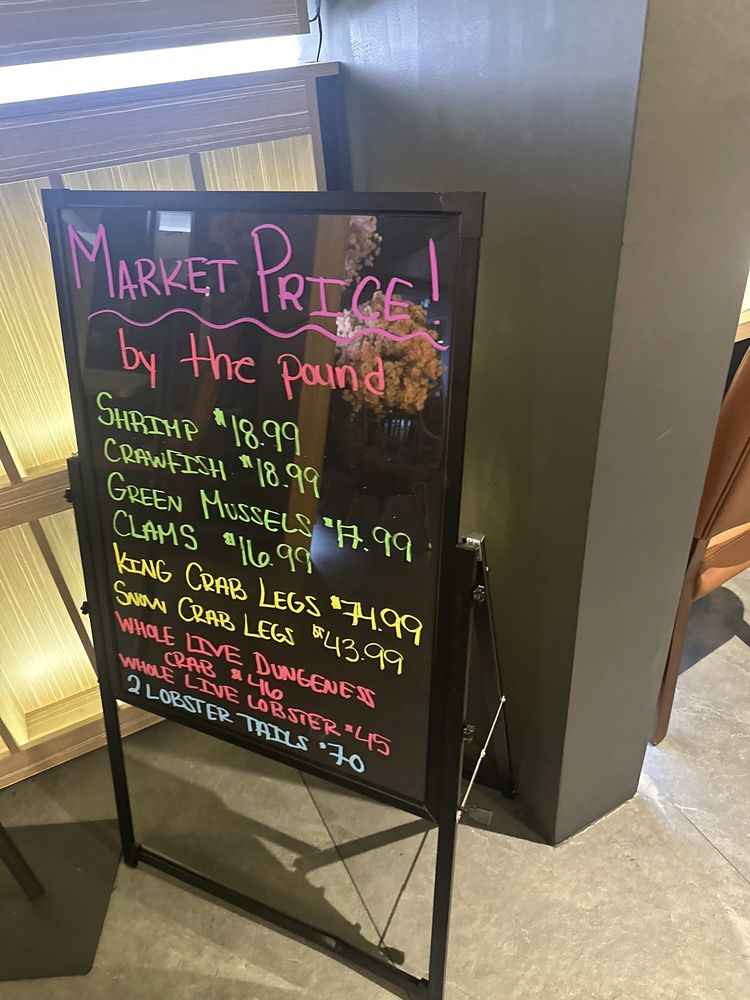 MARKET PRICE!
by the pound
SHRIMP $18.99
CRAWFISH $18.99
GREEN MUSSELS $17.99
CLAMS $16.99
KING CRAB LEGS $74.99
SNOW CRAB LEGS $43.99
WHOLE LIVE DUNGENESS
CRAB $46
WHOLE LIVE LOBSTER $45
2 LOBSTER TAILS $70